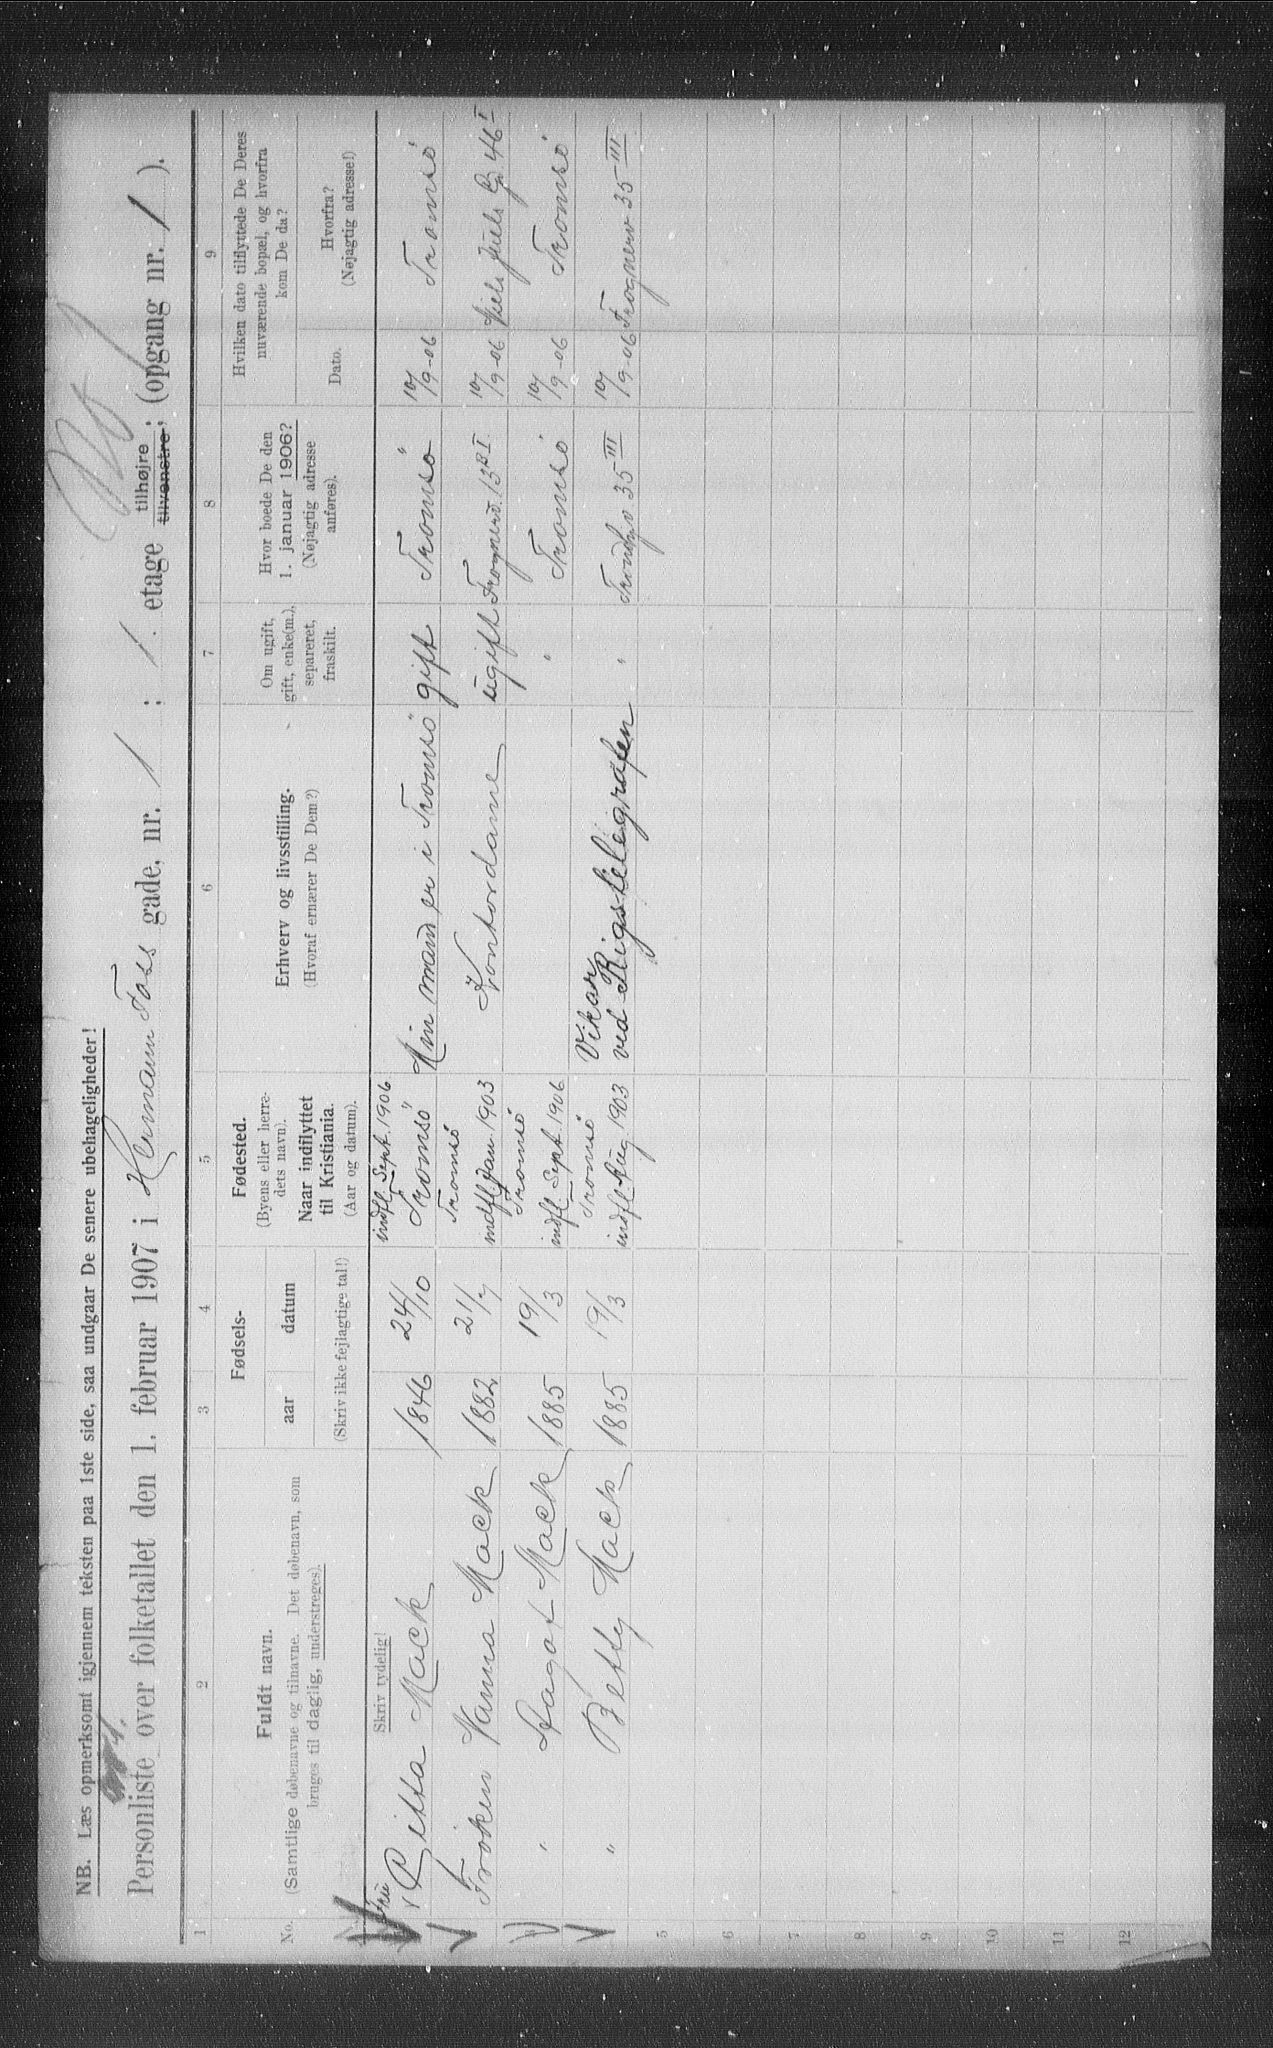 NB. Læs opmerksomt igjennem teksten paa 1ste side, saa undgaar De senere ubehageligheder!
Personliste over folketallet den 1. februar 1907 i Hermann Foss gade, nr. 1 : 1. etage tilhøjre tilvenstre; (opgang nr. 1 ).
1 2 3 4 5 6 7 8 9
No.
Fuldt navn.
(Samtlige døbenavne og tilnavne. Det døbenavn, som
bruges til daglig, understreges).
Fødsels-
aar datum
(Skriv ikke fejlagtige tal!)
Fødested.
(Byens eller herre-
dets navn).
Naar indflyttet
til Kristiania.
(Aar og datum).
Erhverv og livsstilling.
(Hvoraf ernærer De Dem?)
Om ugift,
gift, enke(m.),
separeret,
fraskilt.
Hvor boede De den
1. januar 1906?
(Nøjagtig adresse
anføres).
Hvilken dato tilflyttede De Deres
nuværende bopæl, og hvorfra
kom De da?
Dato.
Hvorfra?
(Nøjagtig adresse!)
Skriv tydelig!
Fru
indfl. Sept. 1906
Gitta Mack 1846 24/10 Tromsö Min mand er i Tromsö gift Tromsö 10/9-06 Tromsö
Tromsö
Frøken Nanna Mack 1882 21/7 indfl Jan. 1903 Kontordame ugift Frognerv. 13 I 10/9-06 Niels Juels G 46 I
Tromsö
" Dagot Mack 1885 19/3 indfl. Sept. 1906 " Tromsö 10/9-06 Tromsö
Tromsö Vikar
" Betty Mack 1885 19/3 indfl. Aug 1903 ved Rigstelegrafen " 35 III 10/9-06 Frognerv 35 III
5
6
7
8
9
10
11
12